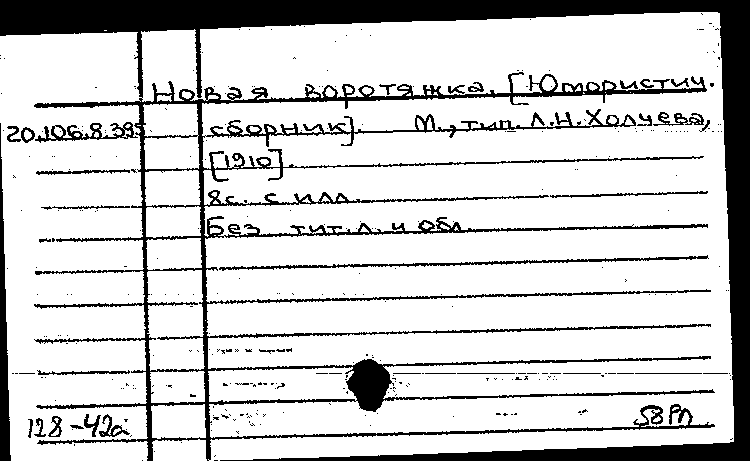 Новая воротяжка. [Юмористич.
20.106.8.395 сборник]. М., тип. Л.Н. Холчева,
[1910].
8с. с илл.
Без тит. л. и обл.
128-42а 58РЛ